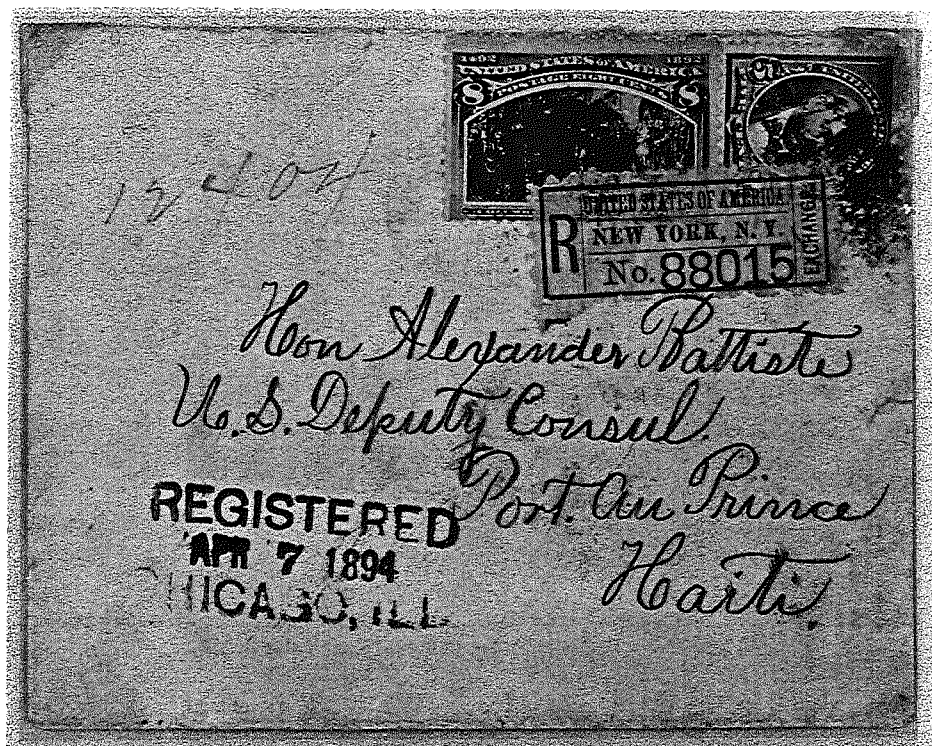 1492 1892
UNITED STATES OF AMERICA
8 POSTAGE EIGHT CENTS 8
12404
R
UNITED STATES OF AMERICA
NEW YORK, N. Y.
No. 88015
EXCHANGE
Hon Alexander Battiste
U. S. Deputy Consul.
Port. Au Prince
Haiti.
REGISTERED
APR 7 1894
CHICAGO, ILL